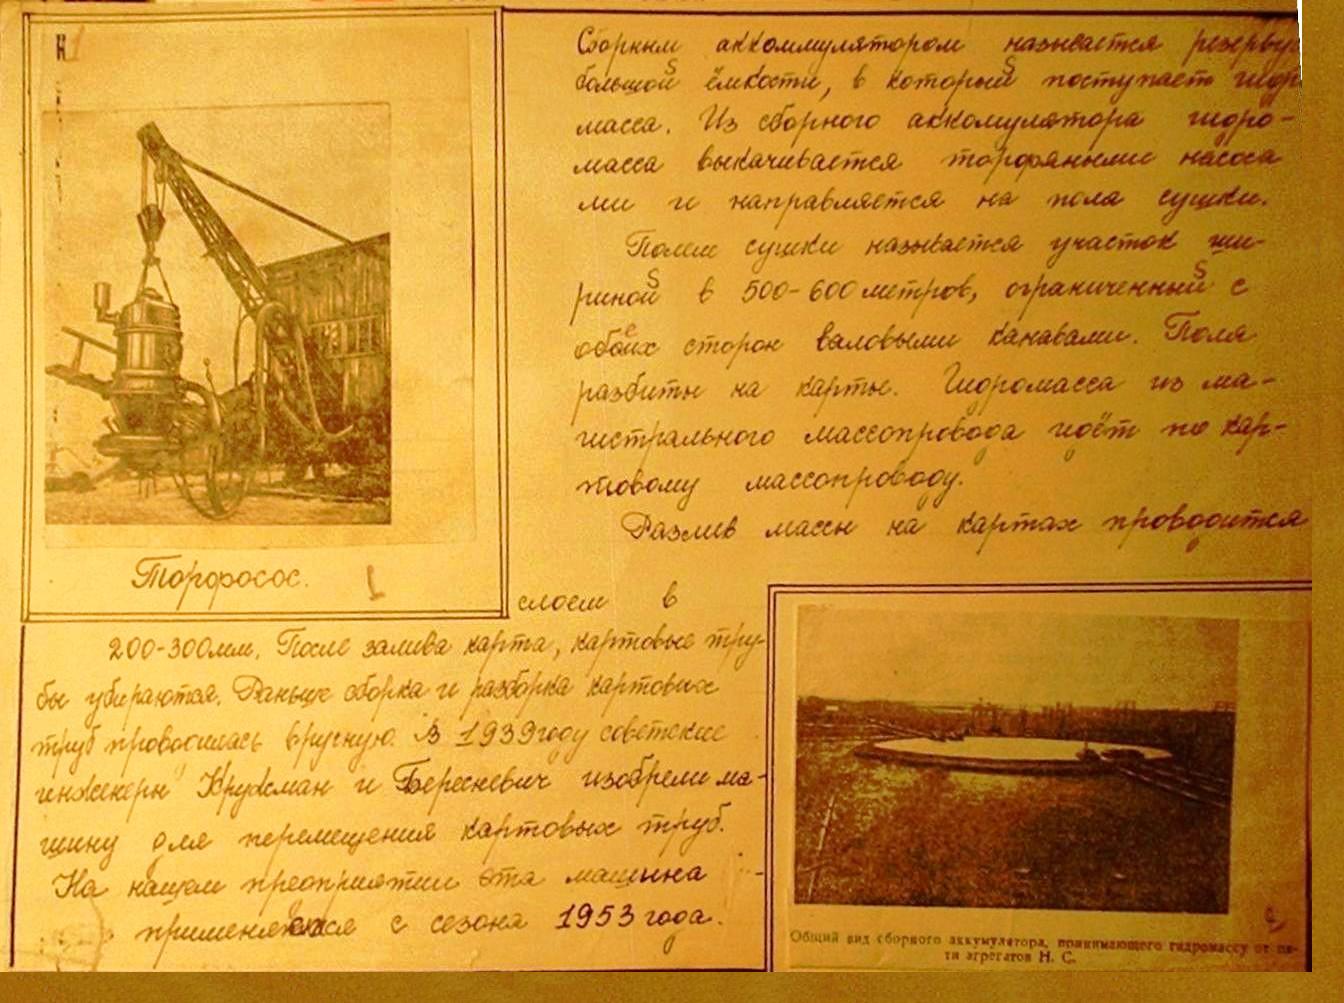 Сборным аккоммулятором называется резерву
большой ёмкости, в который поступает гидр
масса. Из сборного аккомулятора гидро-
масса выкачивается торфяными насоса
ми и направляется на поля сушки.
Полем сушки называется участок ши-
риной в 500-600 метров, ограниченный с
обеих сторон валовыми канавами. Поля
разбиты на карты. Гидромасса из ма-
гистрального массопровода идёт по кар-
товому массопроводу.
Разлив массы на картах проводится
слоем в
200-300мм. После залива карта, картовые тру-
бы убираются. Раньше сборка и разборка картовых
труб проводилась вручную. В 1939 году советские
инженеры Кружман и Бересневич изобрели ма-
шину для перемещения картовых труб.
На нашем предприятии эта машина
применяется с сезона 1953 года.
Торфосос.
Общий вид сборного аккумулятора, принимающего гидромассу от пя-
ти агрегатов Н. С.